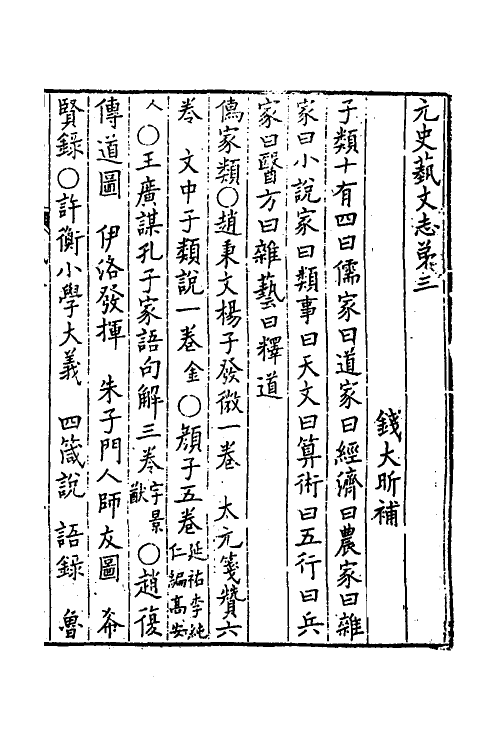 元史藝文志弟三
錢大昕補
子類十有四曰儒家曰道家曰經濟曰農家曰雜
家曰小說家曰類事曰天文曰算術曰五行曰兵
家曰醫方曰雜藝曰釋道
儒家類○趙秉文楊子發微一卷　太元箋贊六
卷　文中子類說一卷金○顏子五卷延祐李純仁編高安
人○王廣謀孔子家語句解三卷字景猷○趙復
傳道圖　伊洛發揮　朱子門人師友圖　希
賢錄○許衡小學大義　四箴說　語錄　魯